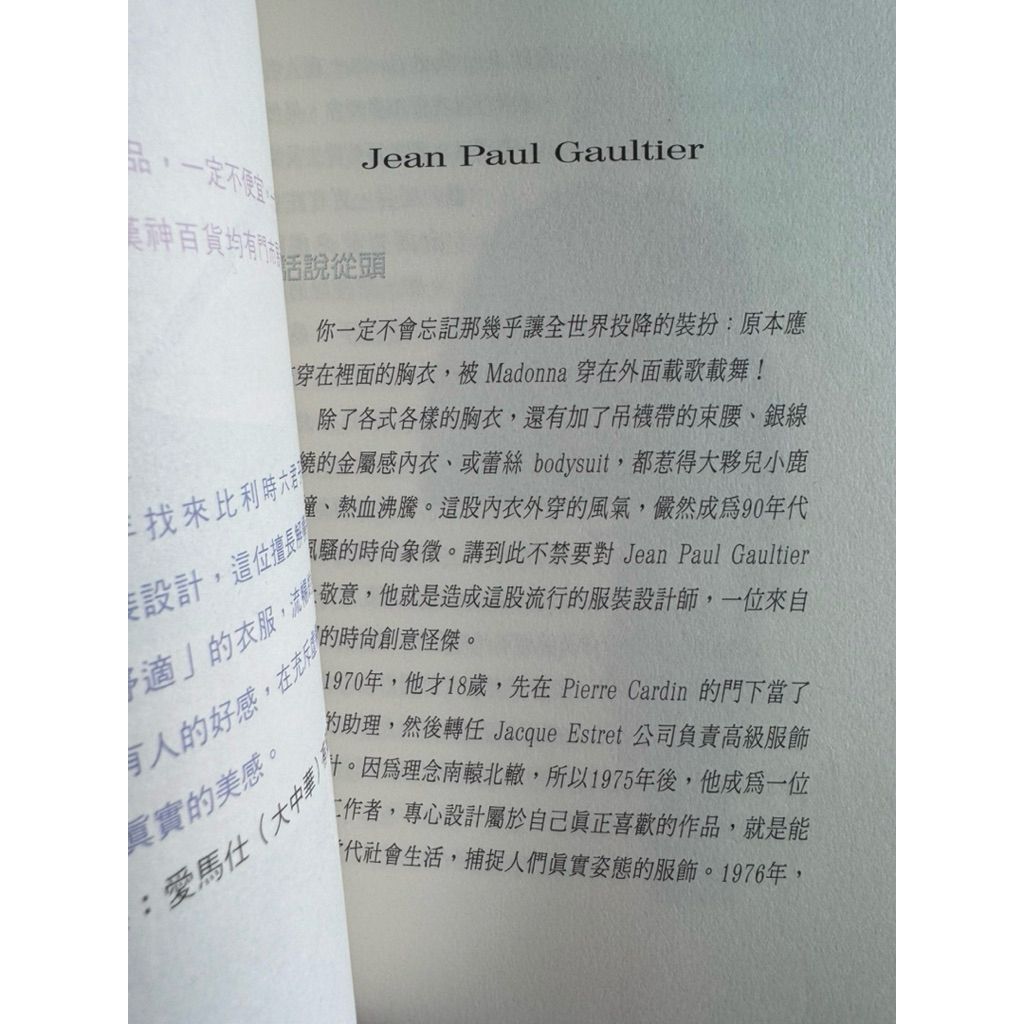 品，一定不便宜，
漢神百貨均有門市
找來比利時六君
裝設計，這位擅長解
舒適」的衣服，流暢
有人的好感，在充斥
真實的美感。
：愛馬仕（大中華）
Jean Paul Gaultier
話說從頭
你一定不會忘記那幾乎讓全世界投降的裝扮：原本應
穿在裡面的胸衣，被 Madonna 穿在外面載歌載舞！
除了各式各樣的胸衣，還有加了吊襪帶的束腰、銀線
繞的金屬感內衣、或蕾絲 bodysuit，都惹得大夥兒小鹿
撞、熱血沸騰。這股內衣外穿的風氣，儼然成爲90年代
風騷的時尚象徵。講到此不禁要對 Jean Paul Gaultier
敬意，他就是造成這股流行的服裝設計師，一位來自
的時尚創意怪傑。
1970年，他才18歲，先在 Pierre Cardin 的門下當了
的助理，然後轉任 Jacque Estret 公司負責高級服飾
計。因爲理念南轅北轍，所以1975年後，他成爲一位
工作者，專心設計屬於自己眞正喜歡的作品，就是能
代社會生活，捕捉人們眞實姿態的服飾。1976年，